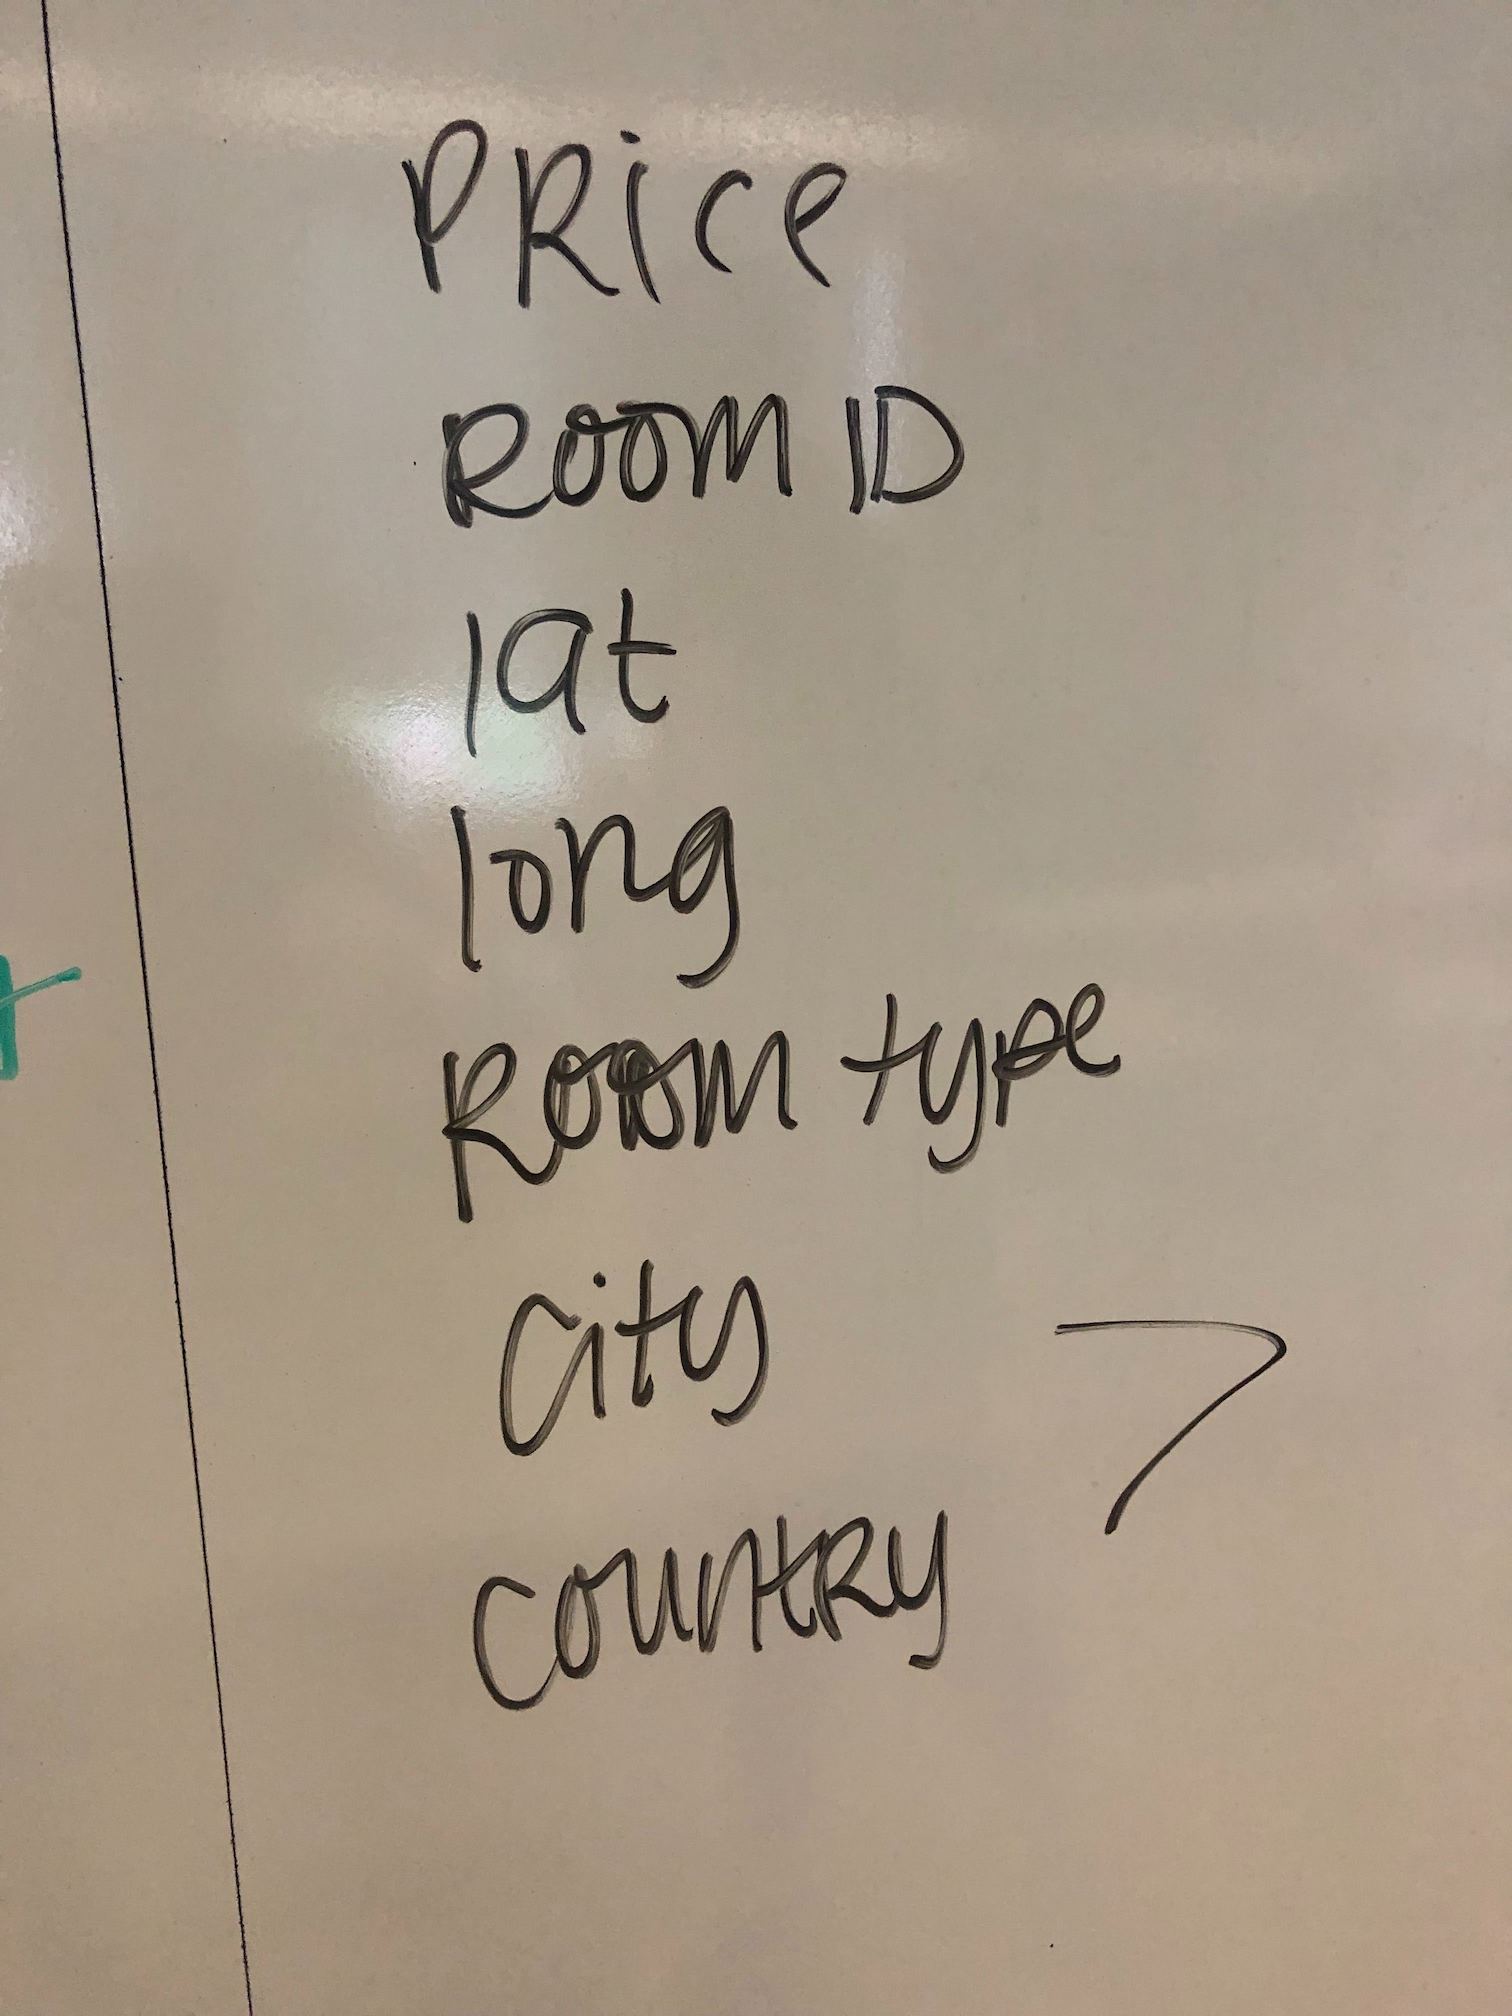 PRice
ROOM ID
lat
long
ROOM type
city
countRy